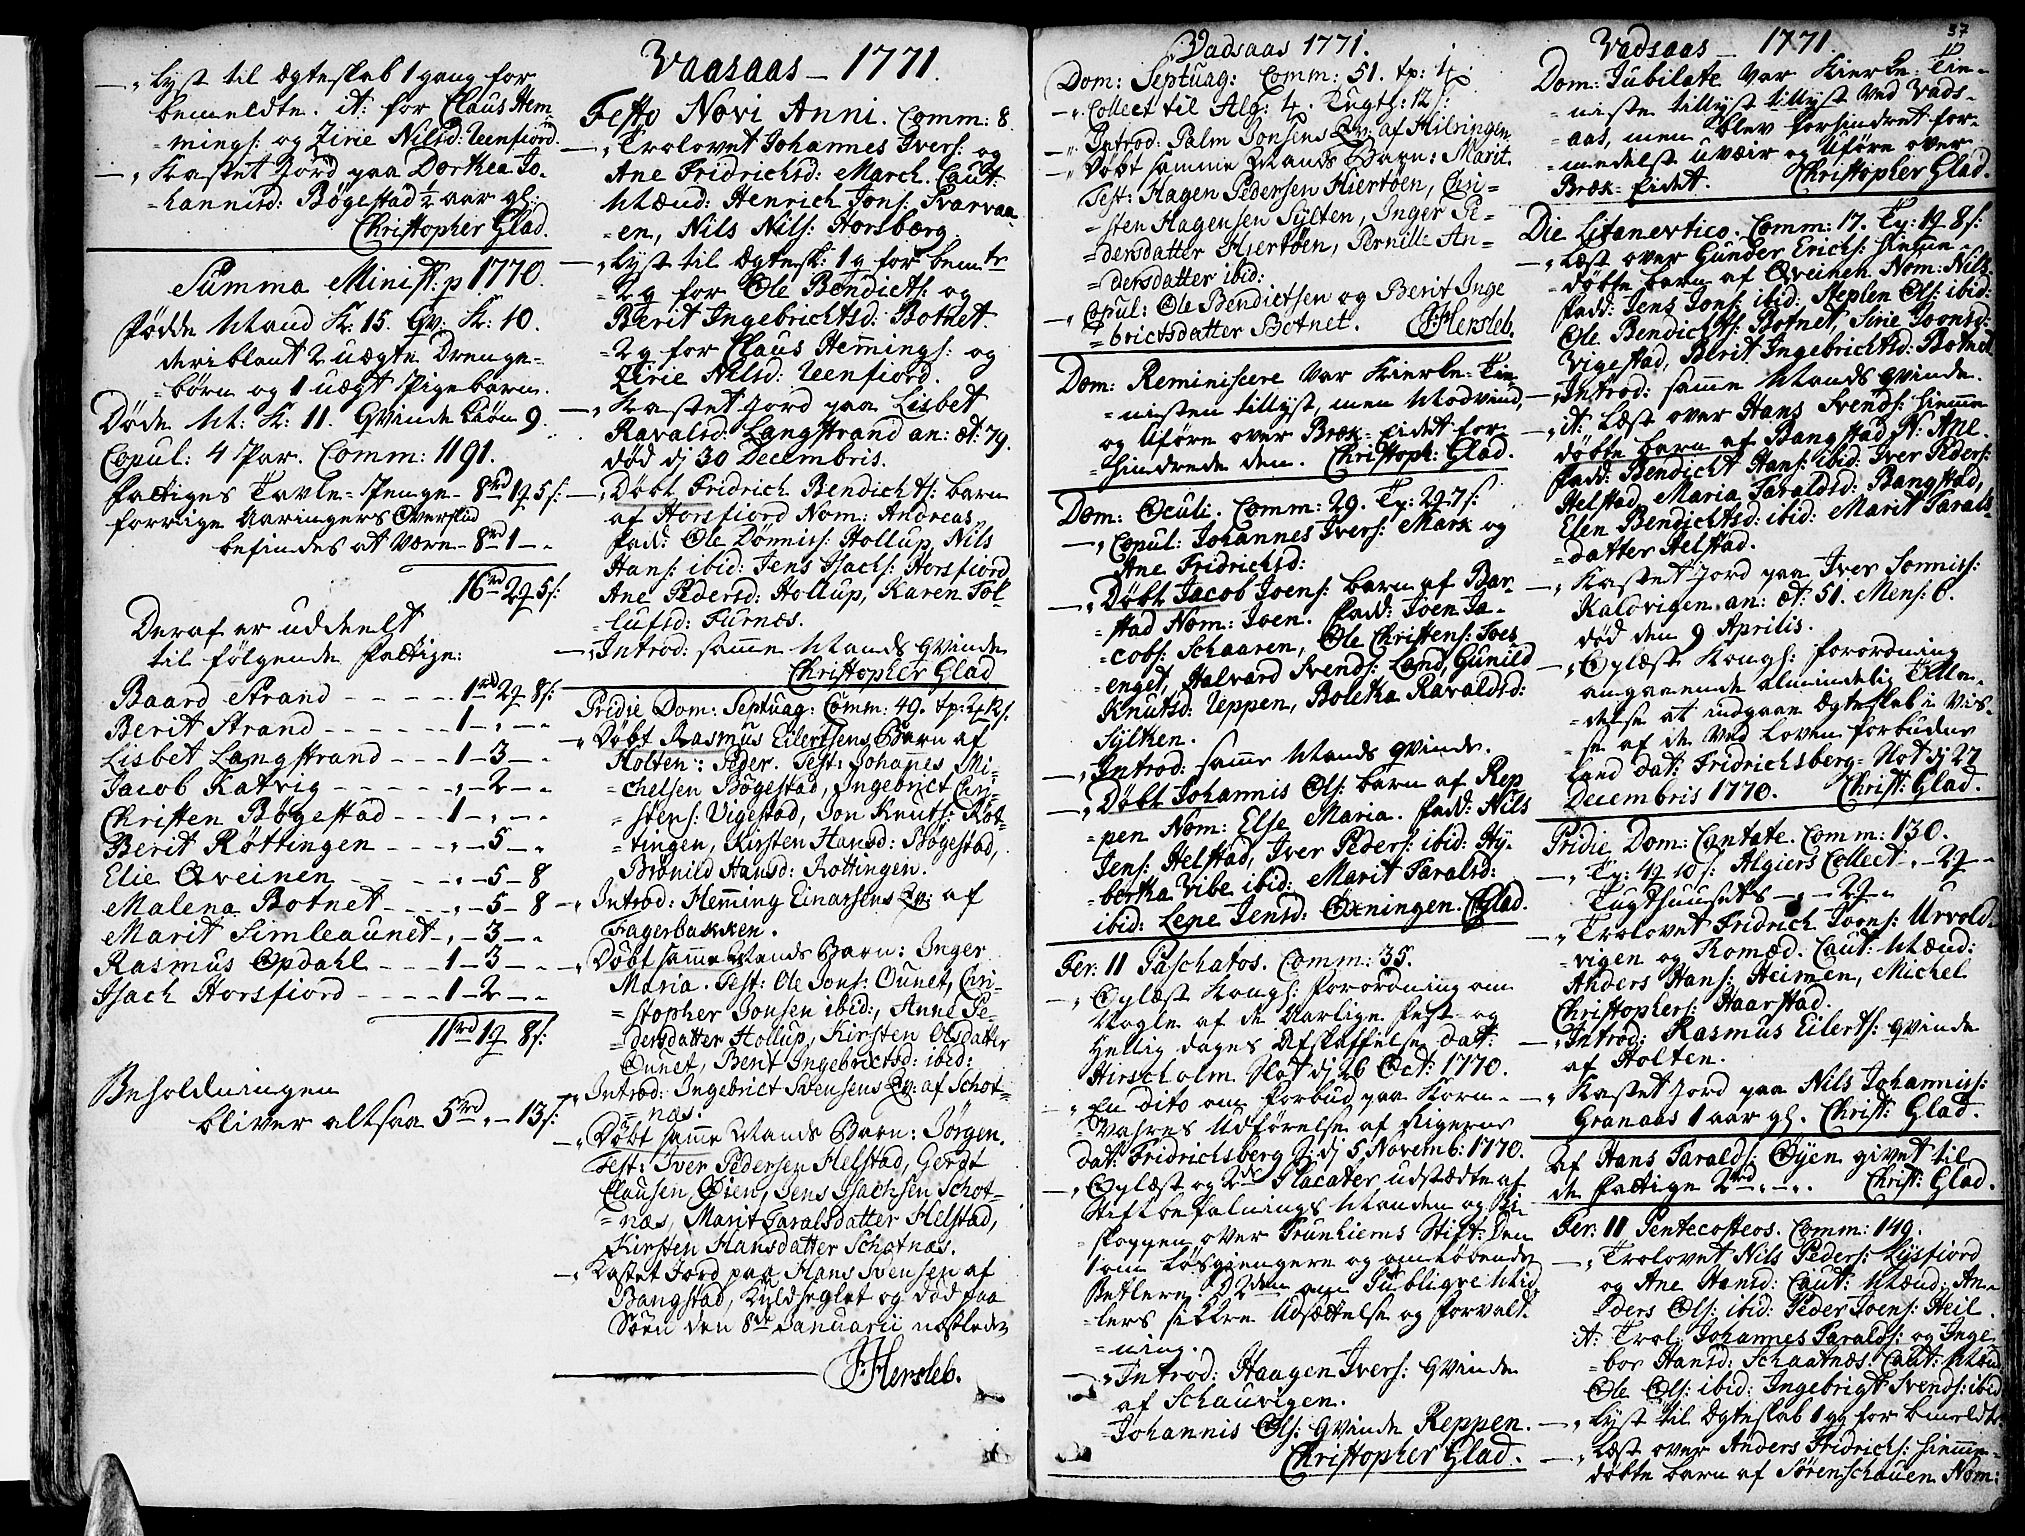 -„ Lyst til Ægteskab 1 gang for
bemeldte. it: for Claus Hem-
=mings: og Zirie Nilsd: Ueenfiord.
-„ Kastet Jord paa Dorthea Jo-
=hannisd: Bögestad ½ aar gl:
Christopher Glad.
Summa Minist: p 1770.
Födde Mand K: 15. Qv: K: 10.
deriblant 2 uægte Drenge-
=börn og 1 uægt Pigebarn.
Döde M: K: 11. Qvinde Kiön 9.
Copul: 4 Par. Comm: 1191.
Fattiges Tavle=Penge - 8rd 1q 5s:
forrige Aaringers Overskud
befindes at være - 8rd 1 - „
16rd 2q 5s:
Deraf er uddeelt
til fölgende Fattige:
Baard Strand - - - - - 1rd 2q 8s:
Berit Strand - - - - - 1 - „ - „
Lisbet Langstrand - - - 1 - 3 - „
Jacob Katvig - - - - - „ - 2 - „
Christen Bögestad - - - 1 - „ - „
Berit Röttingen - - - „ - 5 - „
Elie Qveinen - - - - „ - 5 - 8
Malena Botnet - - - „ - 5 - 8
Marit Simleaunet - „ - 3 - „
Rasmus Opdahl - - - 1 - 3 - „
Isach Horsfiord - - - - 1 - 2 - „
11rd 1q 8s:
Beholdningen
bliver altsaa 5rd „ - 13s:
Vaasaas - 1771.
Festo Novi Anni. Comm: 8.
-„ Trolovet Johannes Ivers: og
Ane Fridrichsd: March. Caut:
Mænd: Henrich Jons: Svarvaa-
=en, Nils Nils: Horsberg.
-„ Lyst til Ægtesk: 1 g for bemte
=2 g for Ole Bendicts: og
Berit Ingebrichtsd: Botnet.
=2 g for Claus Hemmings: og
Zirie Nilsd: Ueenfiord.
-„ Kastet Jord paa Lisbet
Ravalsd: Langstrand an: æt: 79.
död dj 30 Decembris.
-„ Döbt Fridrich Bendichts: barn
af Horsfiord Nom: Andreas.
Fadd: Ole Dönnis: Hollup, Nils
Hans: ibid: Jens Isachs: Horsfiord
Ane Pedersd: Hollup, Karen Tol-
=lufsd: Furnæs.
-„ Introd: samme Mands Qvinde
Christopher Glad
Pridie Dom: Septuag: Comm: 49. tp: 2q 12s.
-„ Döbt Rasmus Eilertsens Barn af
Holten: Peder. Test: Johanes Mi-
=chelsen Bögestad, Ingebrict Chri-
=stens: Vigestad, Jon Knuts: Röt-
=tingen, Kirsten Hansd: Bögestad,
Brönild Hansd: Rottingen.
-„ Introd: Hemming Einarsens Qv: af
Fagerbakken.
-„ Döbt samme Mands Barn: Inger
Maria. Test: Ole Jons: Ounet, Chri-
=stopher Jonsen ibid:, Anne Pe-
=dersdatter Hollup, Kirsten Olsdatter
Ounet, Berit Ingebrictsd: ibid:
-„ Introd: Ingebrict Svensens Qv: af Schot-
=næs.
-„ Döbt samme Mands Barn: Jörgen.
Test: Iver Pedersen Helstad, Gerdt
Clausen Öien, Jens Isachsen Schot-
=næs, Marit Taralsdatter Helstad,
Kirsten Hansdatter Schotnæs.
-„ Kastet Jord paa Hans Svensen af
Bangstad, Kuldseglet og död paa
Söen den 8de Januarii næstleden
J Hersleb.
Vadsaas 1771.
Dom: Septuag: Comm: 51. tp: 1q.
-„ Collect til Alg: 4. Tugth: 12 s:
-„ Introd: Palm Jonsens Qv: af Hilringen
-„ Döbt samme Mands Barn: Marit.
Test: Hagen Pedersen Hiertöen, Chri-
=sten Hagensen Sylten, Inger Pe-
=dersdatter Hiertöen, Pernill: An-
=dersdatter ibid:
-„ Copul: Ole Bendictsen og Berit Inge
=brictsdatter Botnet. J Hersleb.
Dom: Reminiscere var Kierke=Tie-
=nisten tillyst, men Modvind,
og Uföre over Bræk=eidet for-
=hindrede den. Christoph: Glad.
Dom: Oculi. Comm: 29. Tp: 2q 7s:
-„ Copul: Johannes Ivers: Mark og
Ane Fridrichsd:
-„ Döbt Jacob Joens: barn af Bar-
=stad Nom: Joen. Fadd: Joen Ja-
=cobs: Schaaren, Ole Christens: Joes
=enget, Halvard Svends: Land, Gunild
Knutsd: Ueppen, Boletha Ravaldsd:
Sylten.
-„ Introd: samme Mands Qvinde.
-„ Döbt Johannis Ols: barn af Rep
=pen Nom: Else Maria. Fadd: Nils
Jens: Helstad, Iver Peders: ibid: Hy-
=bertha Vibe ibid: Marit Taralsd:
ibid: Lene Jensd: Öxningen. CGlad.
Fer: II Paschatos. Comm: 35.
-„ Oplæst Kongl: Forordning om
Nogle af de Aarlige Fest- og
Hellig dages Afskaffelse dat:
Hirscholm Slot dj 26 Oct: 1770.
-„ En dito om Forbud paa Korn-
=Vahres Udförelse af Rigerne
dat: Fridrichsberg S: dj 5 Novemb: 1770.
-„ Oplæst og 2de Placater udstædte af
Stiftbefalnings Manden og Bi-
=skoppen over Trunhiems Stift: Den
1 om Lösgiengere og omlöbende
Betlere. D 2den om Publiqve Mid-
=lers sikkre Udsættelse og Forvalt-
=ning.
-„ Introd: Haagen Ivers: Qvinde
af Schauvigen.
-Johannis Ols: Qvinde Reppen.
Christopher Glad.
37
Vadsaas - 1771.
Dom: Jubilate var Kierke=Tie-
=niste tillyst tillyst ved Vads-
=aas, men blev forhindret for-
=medelst uveir og Uföre over
Bræk=Eidet. Christopher Glad.
Die Litanevtico. Comm: 17. Tp: 1q 8s:
-„ Læst over Gunder Erichs: hiemme-
=döbte barn af Qveinen. Nom: Nils.
Fadd: Jens Jons: ibid: Steplen Ols: ibid:
Ole Bendichts: Botnet, Sirie Joensd:
Vigestad, Berit Ingebrichtsd: Botnet
-„ Introd: samme Mands Qvinde.
-„ it: Læst over Hans Svends: hiemme
döbte barn af Bangstad N: Ane.
Fadd: Bendicht Hans: ibid: Iver Peders:
Helstad, Maria Taraldsd: Bangstad,
Elen Bendichtsd: ibid: Marit Tarals-
=datter Helstad.
-„ Kastet Jord paa Iver Sonnis:
Kalvvigen. an: æt: 51. Mens: 6.
död den 9 Aprilis.
-„ Oplæst Kongl: Forordning
angaaende almindelig Tilla-
=delse at indgaae Ægteskab i vis-
=se af de ved Loven forbudne
Leed dat: Fridrichsberg=Slot dj 27
Decembris 1770. Christ: Glad.
Pridie Dom: Cantate. Comm: 130.
-„ Tp: 4q 10s: Algiers Collect „ - 2q - „
Tugthuusets - „ - 2q - „
-„ Trolovet Fridrich Joens: Urvold-
=vigen og Romæd. Caut: Mænd:
Anders Hans: Heimen, Michel
Christophers: Haarstad.
-„ Introd: Rasmus Eilerts: Qvinde
af Holten.
-„ Kastet Jord paa Nils Johannis:
Granaas 1 aar gl. Christ: Glad.
Af Hans Tarald: Öyen givet til
de Fattige 2rd „ - „. Christ: Glad.
Fer: II Pentecosteos. Comm: 149.
-„ Trolovet Nils Peders: Lysfiord
og Ane Hansd: Caut: Mænd: An-
=ders Ols: ibid: Peder Joens: Heil.
it: Trol: Johannes Taralds: og Inge
=bor Hansd: Schaatnæs. Caut: Mænd
Ole Ols: ibid: Ingebrigt Svends: ibid
-„ Lyst til Ægteskab 1 g for bemeldte
-„ Læst over Anders Fridrichs: hiemme-
=döbte barn af Sörenschauen Nom: